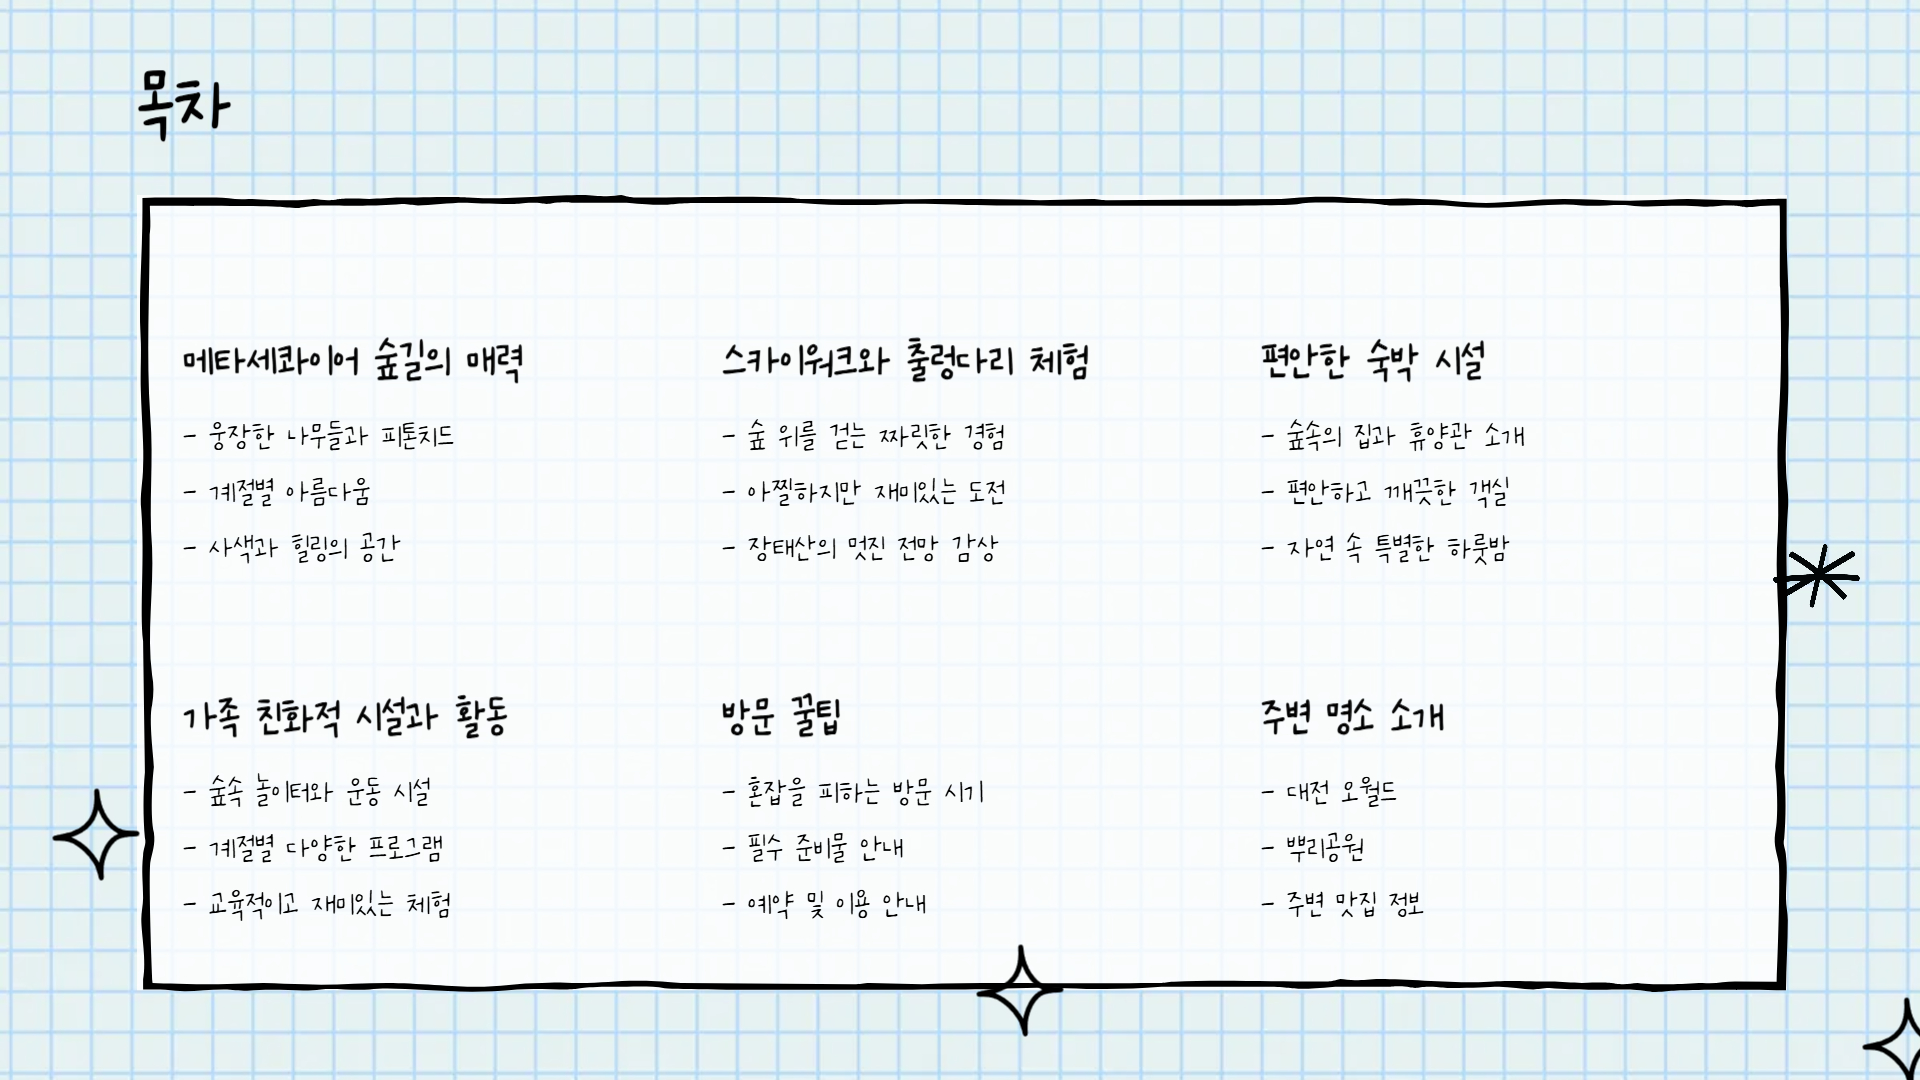 목차
메타세콰이어 숲길의 매력
- 웅장한 나무들과 피톤치드
- 계절별 아름다움
- 사색과 힐링의 공간
스카이워크와 출렁다리 체험
- 숲 위를 걷는 짜릿한 경험
- 아찔하지만 재미있는 도전
- 장태산의 멋진 전망 감상
편안한 숙박 시설
- 숲속의 집과 휴양관 소개
- 편안하고 깨끗한 객실
- 자연 속 특별한 하룻밤
가족 친화적 시설과 활동
- 숲속 놀이터와 운동 시설
- 계절별 다양한 프로그램
- 교육적이고 재미있는 체험
방문 꿀팁
- 혼잡을 피하는 방문 시기
- 필수 준비물 안내
- 예약 및 이용 안내
주변 명소 소개
- 대전 오월드
- 뿌리공원
- 주변 맛집 정보